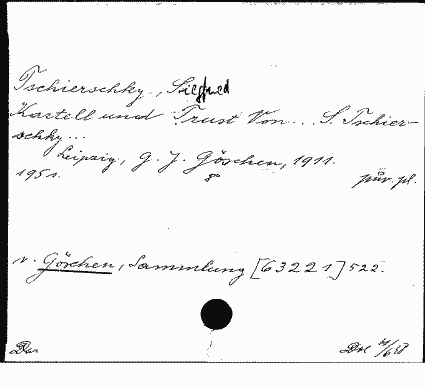 Tschierschky, Siegfried
Kartell und Trust Von... S. Tschier-
schky...
Leipzig, G. J. Göschen, 1911.
195 s. 8° pův. pl.
v. Göschen, Sammlung [63221] 522.